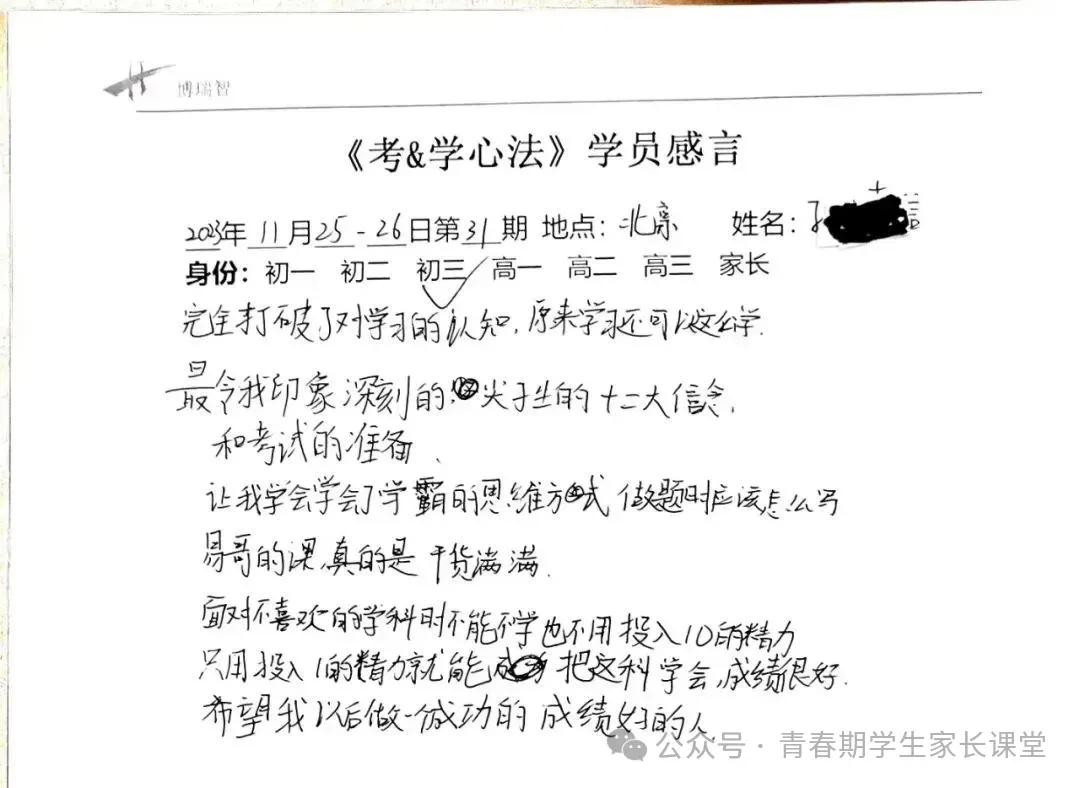 博瑞智
《考&学心法》学员感言
2023年 11月25-26日第31期 地点：北京 姓名：
身份：初一 初二 初三 高一 高二 高三 家长
完全打破了对学习的认知，原来学习还可以这么学.
最令我印象深刻的：尖子生的十二大信念，
和考试的准备.
让我学会学会了学霸的思维方式 做题时应该怎么写
易哥的课,真的是干货满满.
面对不喜欢的学科时不能不学也不用投入10的精力
只用投入1的精力就能 把这科学会,成绩很好.
希望我以后做一个成功的 成绩好的人.
公众号·青春期学生家长课堂